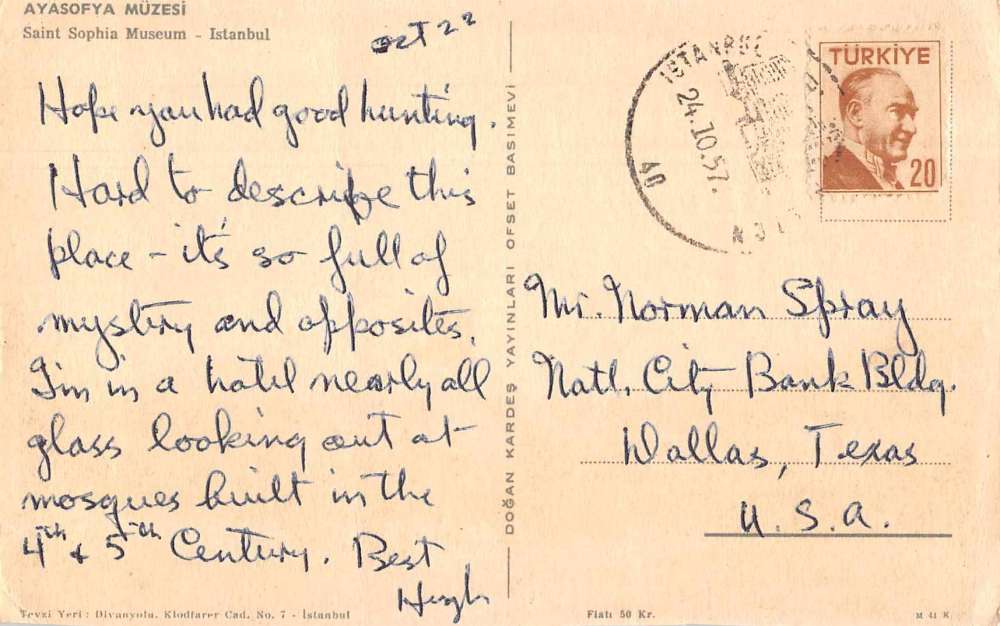 AYASOFYA MÜZESİ
Saint Sophia Museum - Istanbul
Oct 22
Hope you had good hunting.
Hard to describe this
place - it's so full of
mystery and opposites.
I'm in a hotel nearly all
glass looking out at
mosques built in the
4th & 5th Century. Best
Hugh
Tevzi Yeri: Divanyolu, Klodfarer Cad. No. 7 - İstanbul
DOĞAN KARDEŞ YAYINLARI OFSET BASIMEVİ
24.10.57.
TÜRKİYE
20
Mr. Norman Spray
Natl. City Bank Bldg.
Dallas, Texas
U.S.A.
Fiatı 50 Kr.
M 41 K